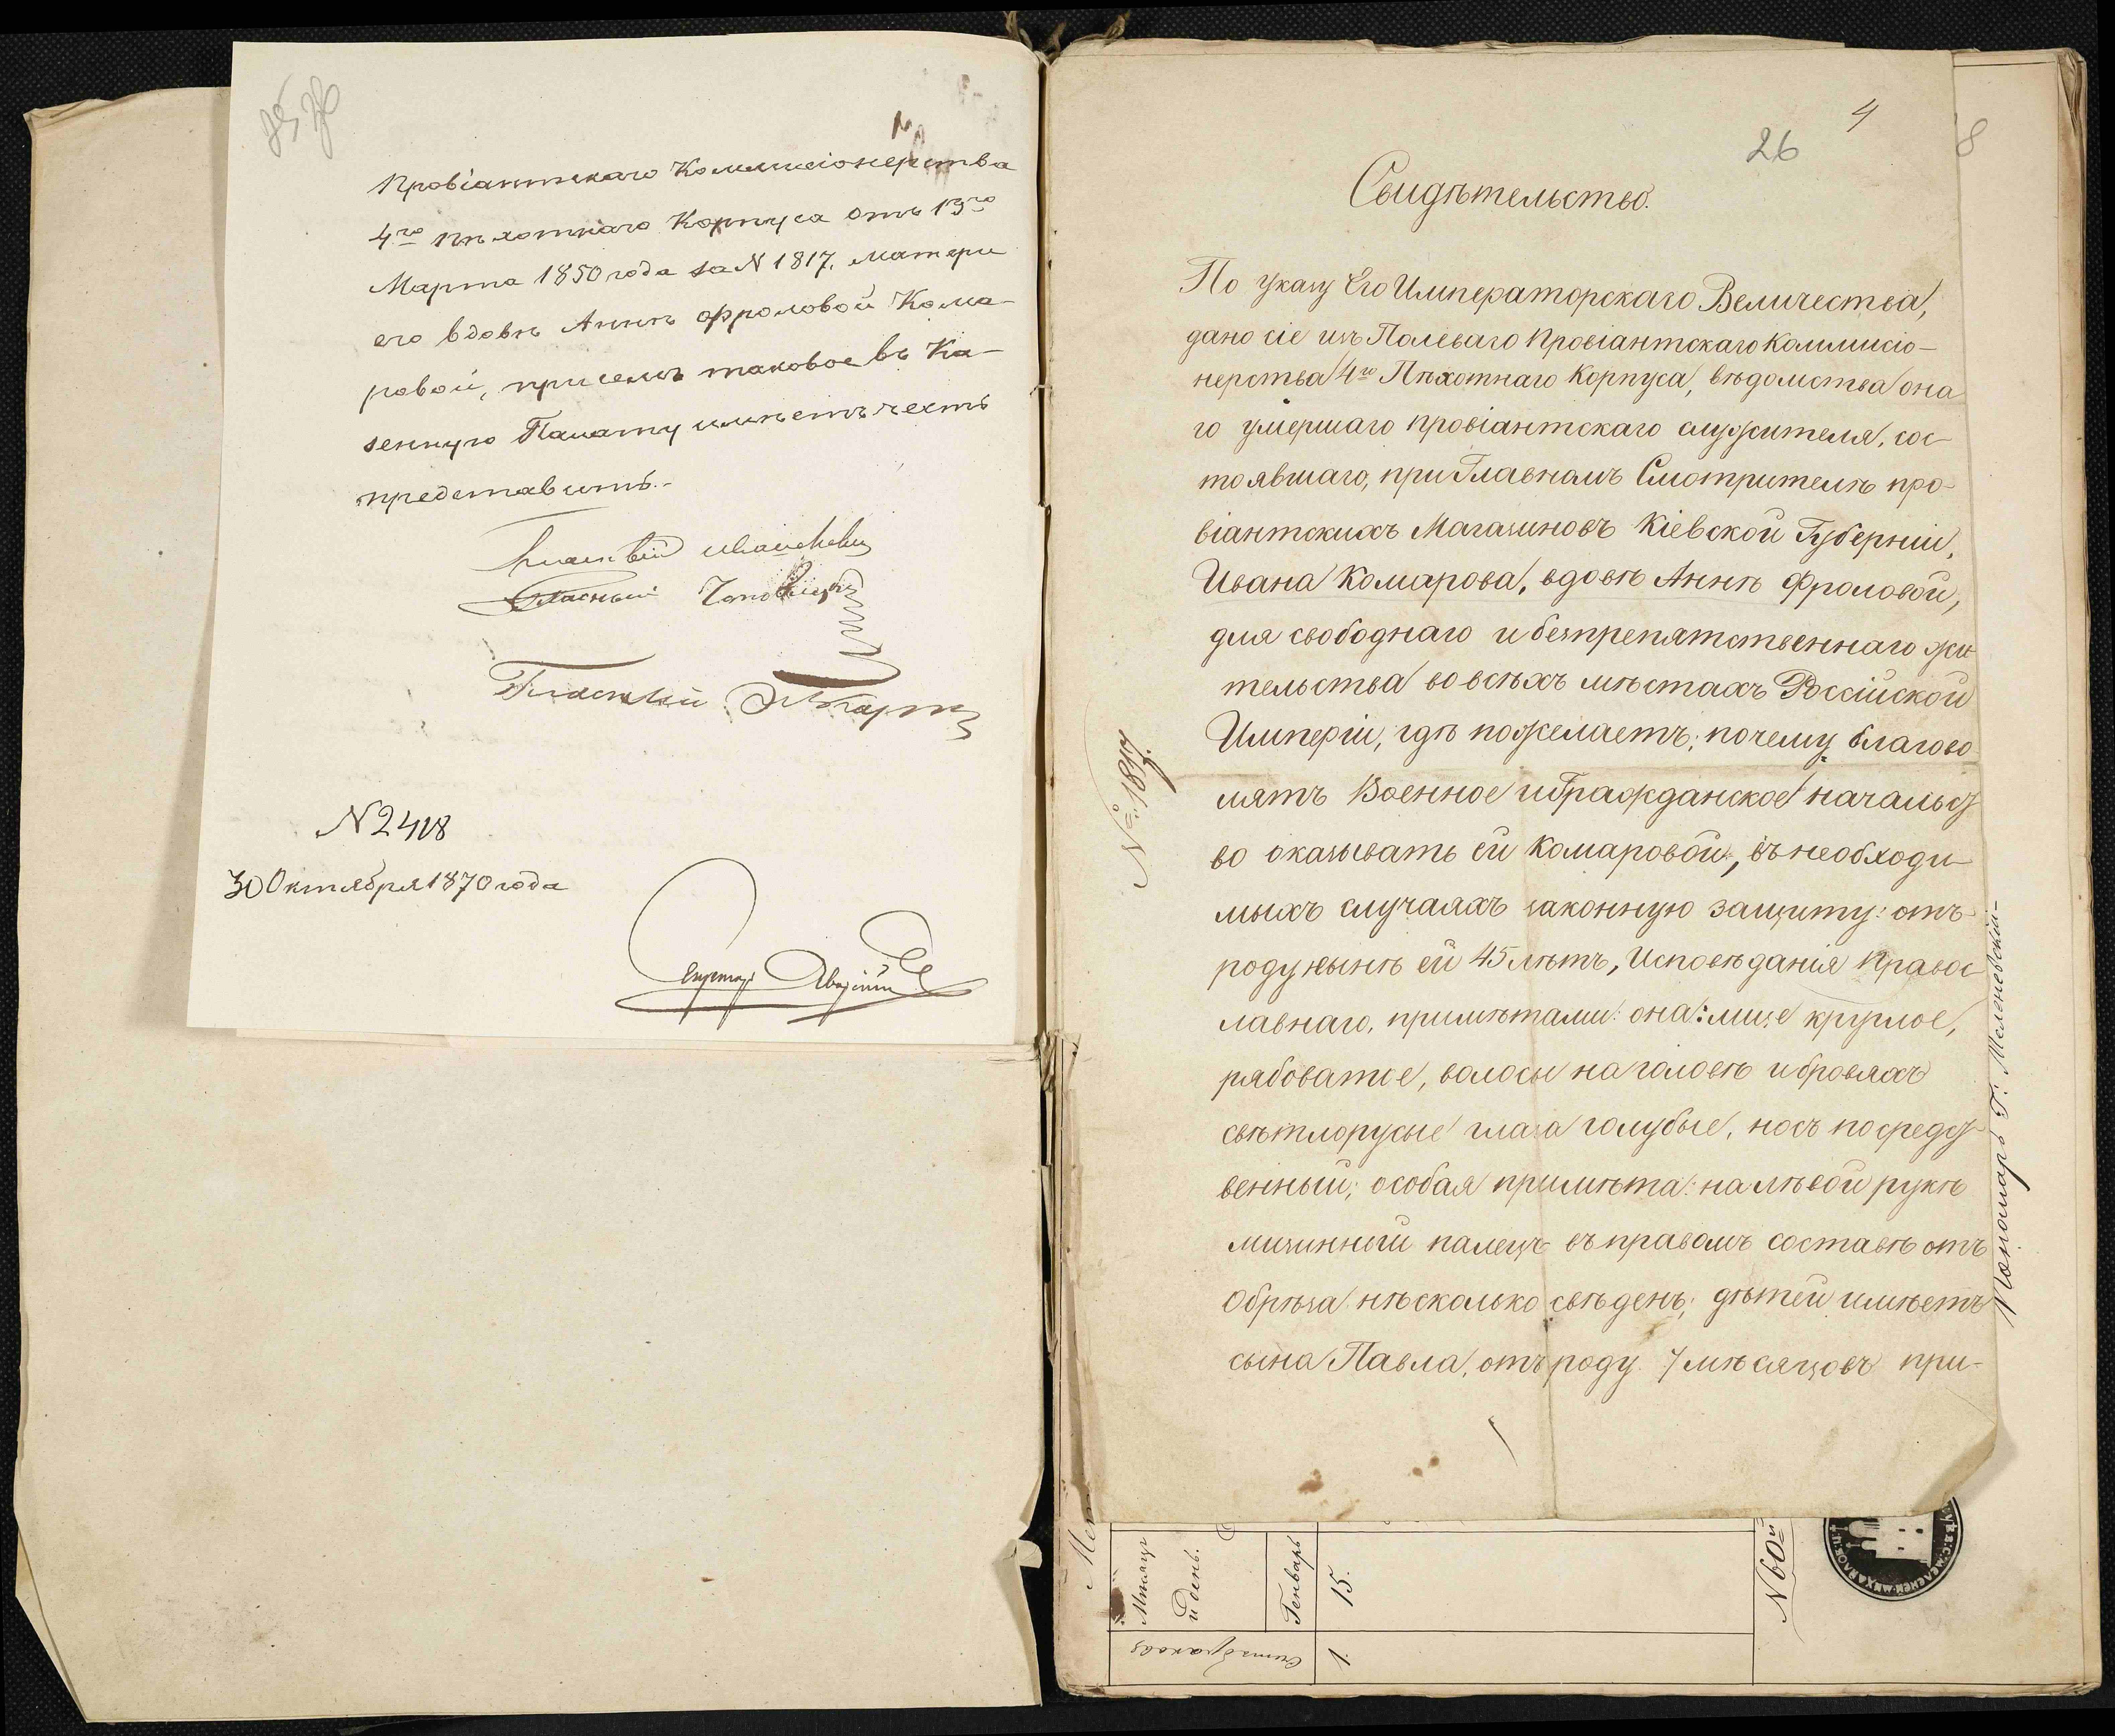 Провіантскаго Коммисіонерства
4го Пѣхотнаго Корпуса отъ 13го
Марта 1850 года за N 1817, матери
его вдовѣ Аннѣ Фроловой Кома-
ровой, при семъ таковое въ Ка-
зенную Палату имѣетъ честь
представить.-
Гласный
Гласный
N 2418
30 Октября 1870 года
Секретарь
4
26
8
Свидѣтельство.
По указу Его Императорскаго Величества,
дано сіе изъ Полеваго Провіантскаго Коммисіо-
нерства 4го Пѣхотнаго Корпуса, вѣдомства она
го умершаго провіантскаго служителя, сос-
тоявшаго, при Главномъ Смотрителѣ про-
віантскихъ Магазиновъ Кіевской Губерніи,
Ивана Комарова, вдовѣ Аннѣ Фроловой,
для свободнаго и безпрепятственнаго жи
тельства во всѣхъ мѣстахъ Россійской
Имперіи, гдѣ пожелаетъ; почему благово-
лятъ Военное и Гражданское начальст
во оказывать ей Комаровой, въ необходи-
мыхъ случаяхъ законную защиту: отъ-
роду нынѣ ей 45 лѣтъ, Исповѣданія Правос
лавнаго, примѣтами: она: лице круглое,
рябоватое, волосы на головѣ и бровяхъ
свѣтлорусые глаза голубые, носъ посредст
венный; особая примѣта: на лѣвой рукѣ
мизинный палецъ въ правомъ составѣ отъ
обрѣза нѣсколько сведенъ; дѣтей имѣетъ
сына Павла, отъ роду 7 мѣсяцовъ при-
№ 1817.
Пономарь Г. Меленевскій-
Мѣсяцъ
и день.
Генварь
15.
Счетъ браковъ
1.
N 60й